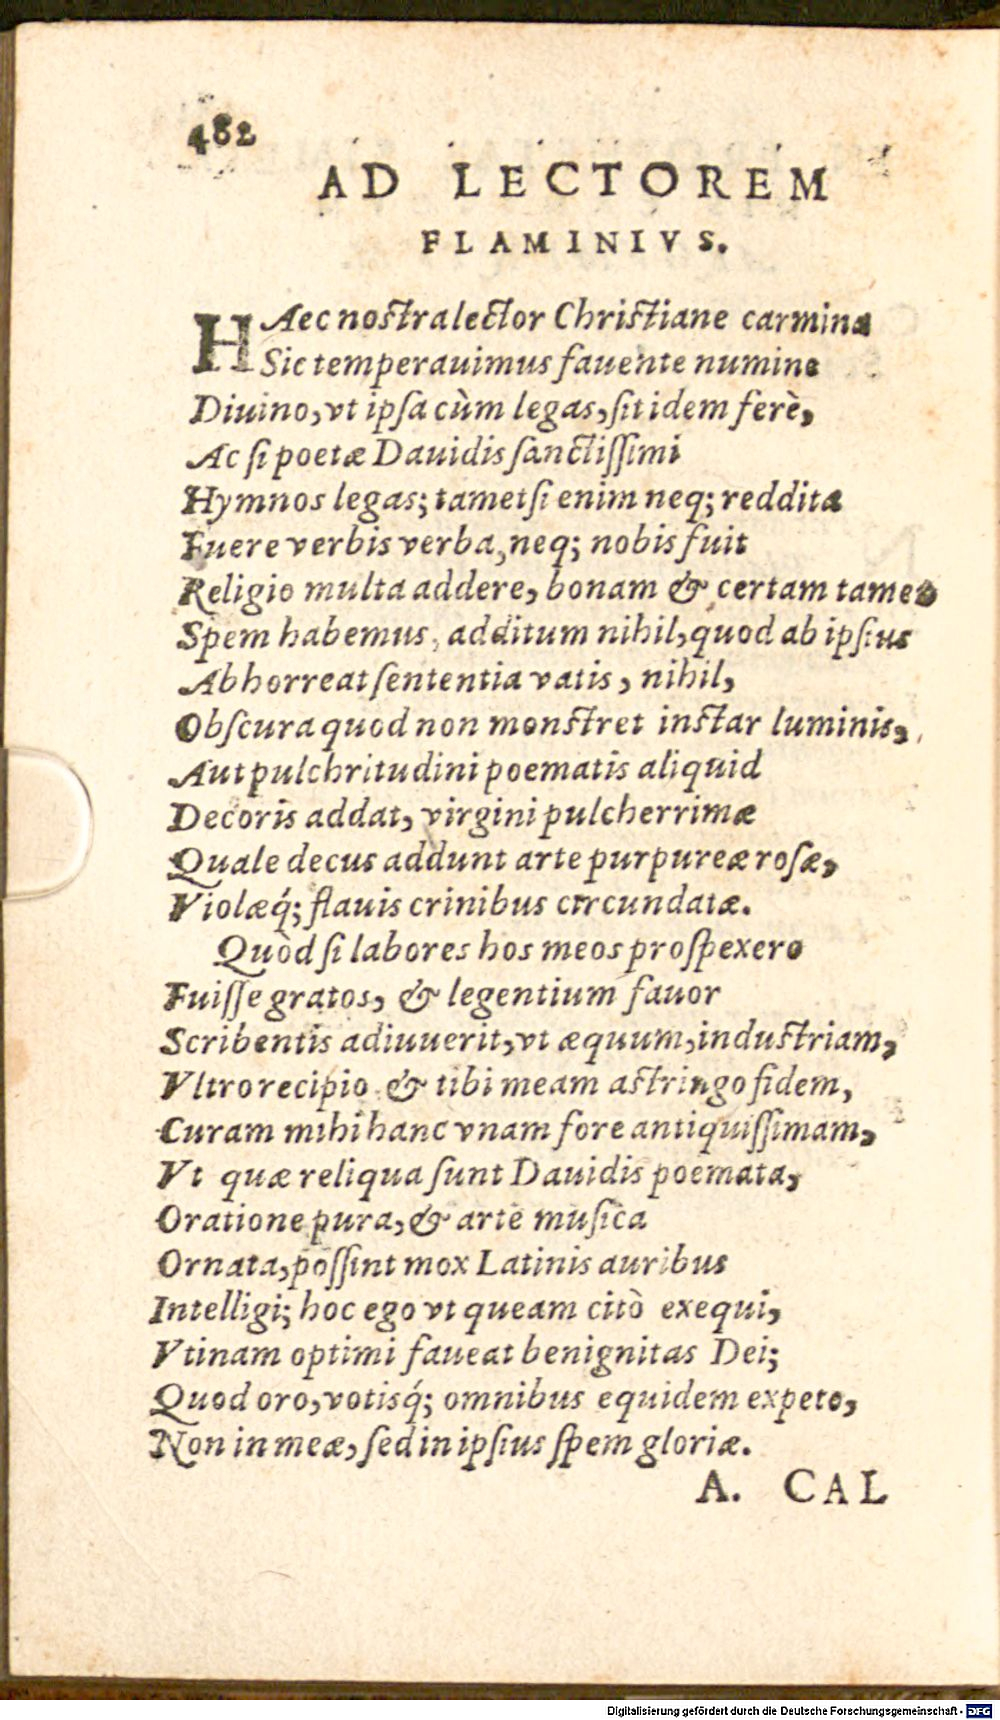 482
AD LECTOREM
FLAMINIVS.
HAec nostra lector Christiane carmina
Sic temperauimus fauente numine
Diuino, vt ipsa cùm legas, sit idem ferè,
Ac si poetæ Dauidis sanctissimi
Hymnos legas; tametsi enim neq; reddita
Fuere verbis verba, neq; nobis fuit
Religio multa addere, bonam & certam tamen
Spem habemus, additum nihil, quod ab ipsius
Abhorreat sententia vatis, nihil,
Obscura quod non monstret instar luminis,
Aut pulchritudini poematis aliquid
Decoris addat, virgini pulcherrimæ
Quale decus addunt arte purpureæ rosæ,
Violæq́; flauis crinibus circundatæ.
Quòd si labores hos meos prospexero
Fuisse gratos, & legentium fauor
Scribentis adiuuerit, vt æquum, industriam,
Vltro recipio & tibi meam astringo fidem,
Curam mihi hanc vnam fore antiquissimam,
Vt quæ reliqua sunt Dauidis poemata,
Oratione pura, & arte musica
Ornata, possint mox Latinis auribus
Intelligi; hoc ego vt queam citò exequi,
Vtinam optimi faueat benignitas Dei;
Quod oro, votisq́; omnibus equidem expeto,
Non in meæ, sed in ipsius spem gloriæ.
A. CAL
Digitalisierung gefördert durch die Deutsche Forschungsgemeinschaft - DFG